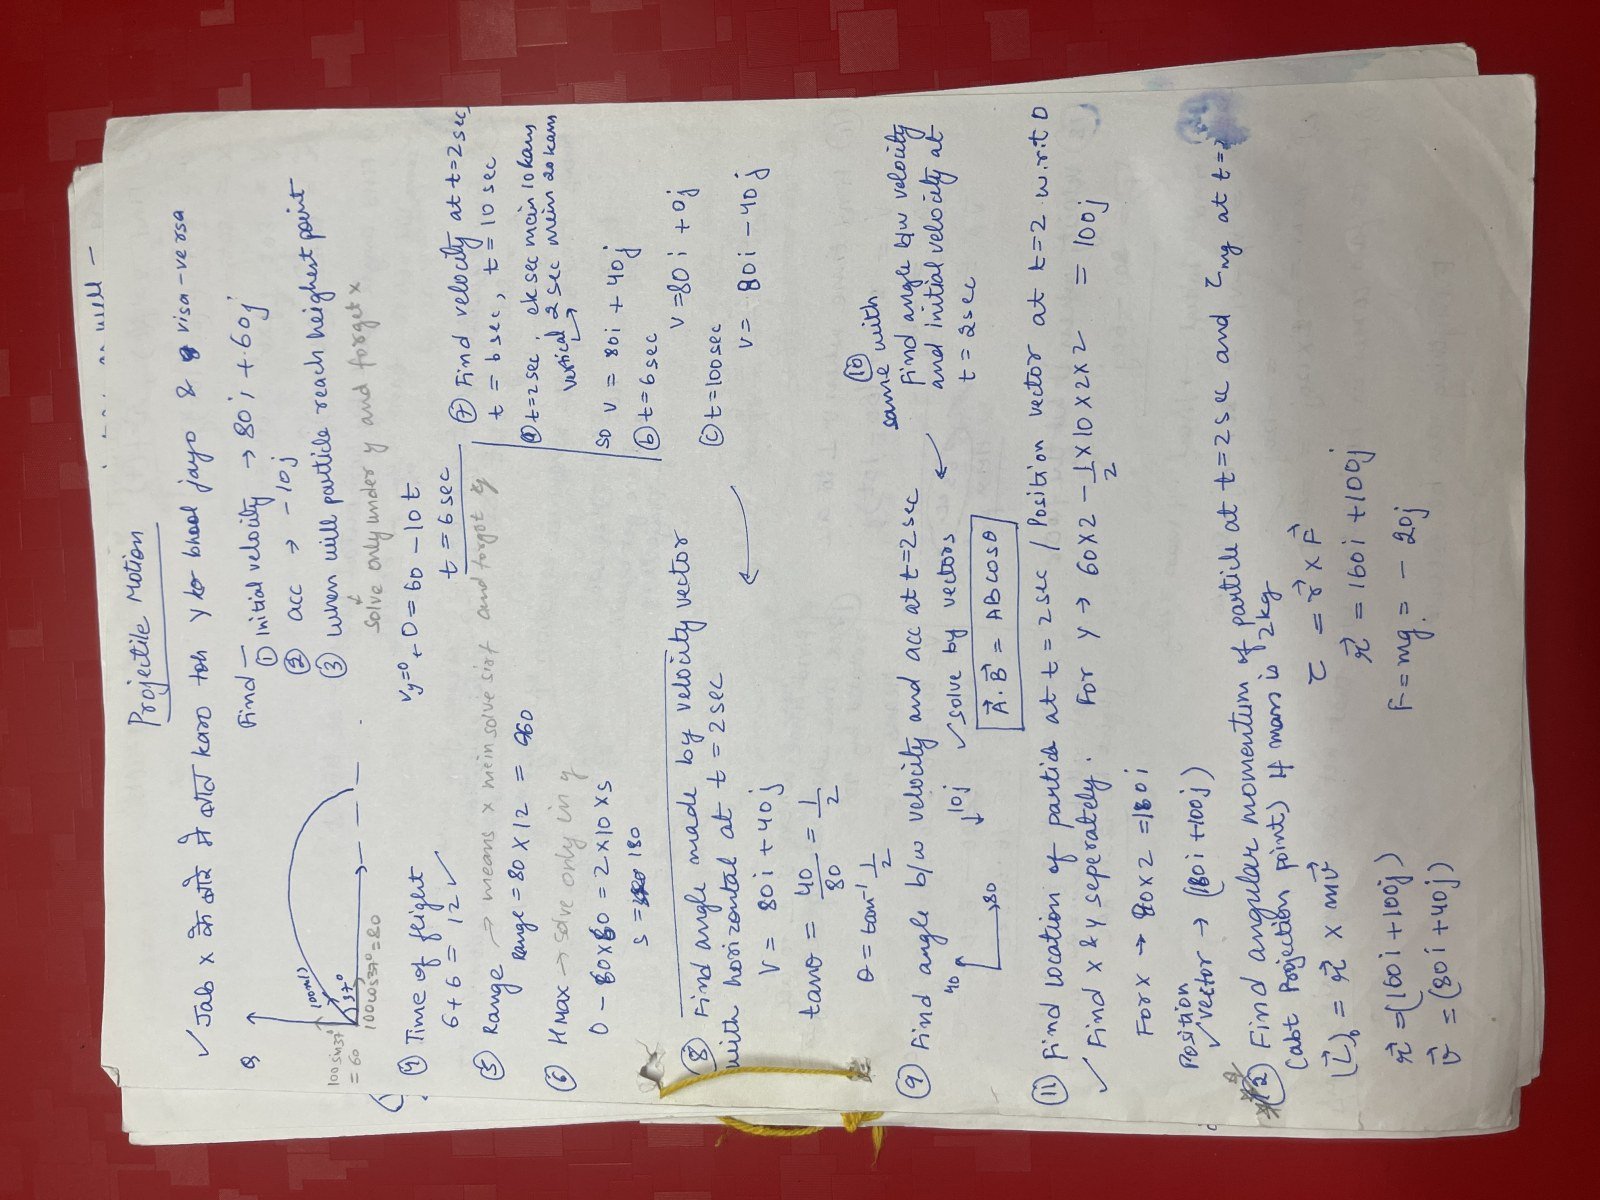 Projectile Motion
✓ Jab x के बारे में बात karo toh y ko bhool jayo & visa-versa
Q
100m/s
37°
100 sin37° = 60
100cos37° = 80
Find —
① Initial velocity → 80i + 60j
② acc → -10j
③ when will particle reach heighest point
solve only under y and forget x
Vy=0 → 0 = 60 - 10t
t = 6 sec
④ Time of flight
6+6 = 12 ✓
⑤ Range ⇒ means x mein solve and forget y
Range = 80 x 12 = 960
⑥ HMax → solve only in y
0 - 60x60 = 2x10xs
s = 180
⑦ Find velocity at t=2sec,
t = 6 sec, t = 10 sec
ⓐ t=2sec, ek sec mein 10 kam
vertical 2 sec mein 20 kam
so v = 80i + 40j
ⓑ t=6sec
v = 80i + 0j
ⓒ t=100sec
v = 80i - 40j
⑧ Find angle made by velocity vector
with horizontal at t = 2sec
V = 80i + 40j
tanθ = 40/80 = 1/2
θ = tan⁻¹ 1/2
⑨ Find angle b/w velocity and acc at t=2sec
40
80
↓10j
✓ solve by vectors
A⃗.B⃗ = AB cosθ
same with
⑩
Find angle b/w velocity
and initial velocity at
t = 2sec
⑪ Find location of particle at t = 2sec / Position vector at t=2 w.r.t O
✓ Find x & y seperately.
For x → 80x2 = 160i
For y → 60x2 - 1/2 x10x2x2 = 100j
Position
✓ vector → (160i + 100j)
⑫ Find angular momentum of particle at t=2sec and τmg at t=
(abt Projection point) If mass is 2kg
(L⃗)₀ = r⃗ x mv⃗
r⃗ = (160i + 100j)
v⃗ = (80i + 40j)
τ = r⃗ x F⃗
r⃗ = 160i + 100j
F = mg = -20j